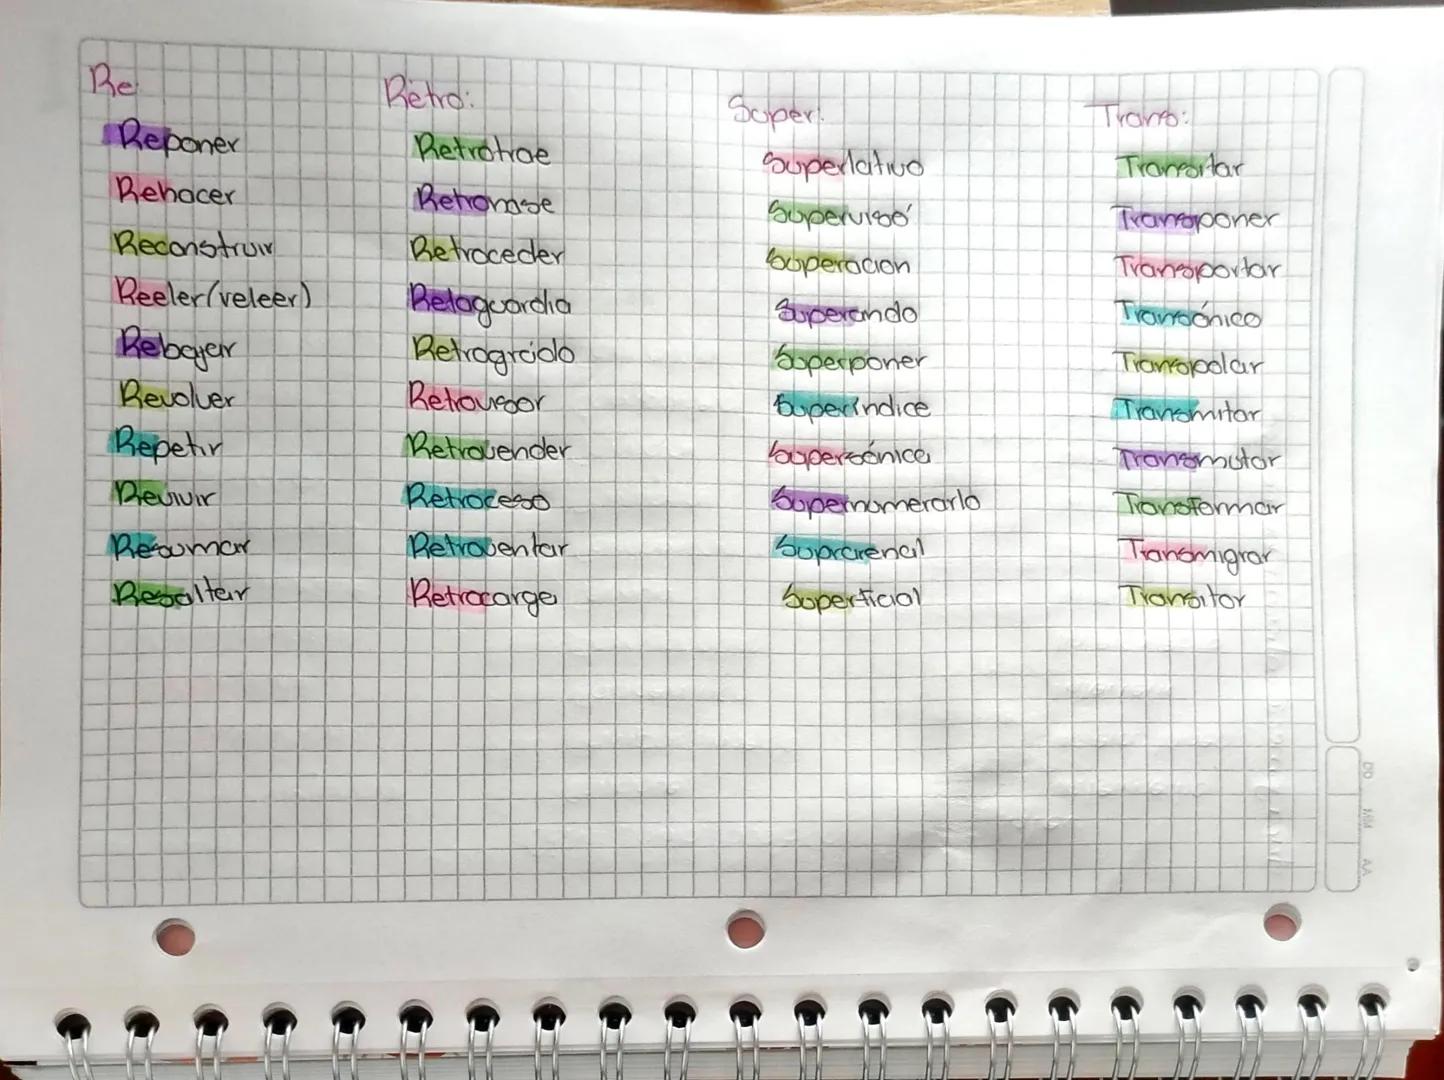 Re:
Reponer
Rehacer
Reconstruir
Reeler(releer)
Rebajar
Revolver
Repetir
Revivir
Resumar
Resaltar
Retro:
Retrotrae
Retronase
Retroceder
Retaguardia
Retrogrado
Retrovisor
Retrovender
Retroceso
Retroventar
Retrocarga
Super:
Superlativo
Supervisó
Superacion
Superando
Superponer
Superíndice
Supersónica
Supernumerarlo
Suprarenal
Superficial
Trans:
Transponer
Transportar
Transónico
Transpolar
Transmitar
Transmutar
Transformar
Transmigrar
Transitar
DD
MM
AA